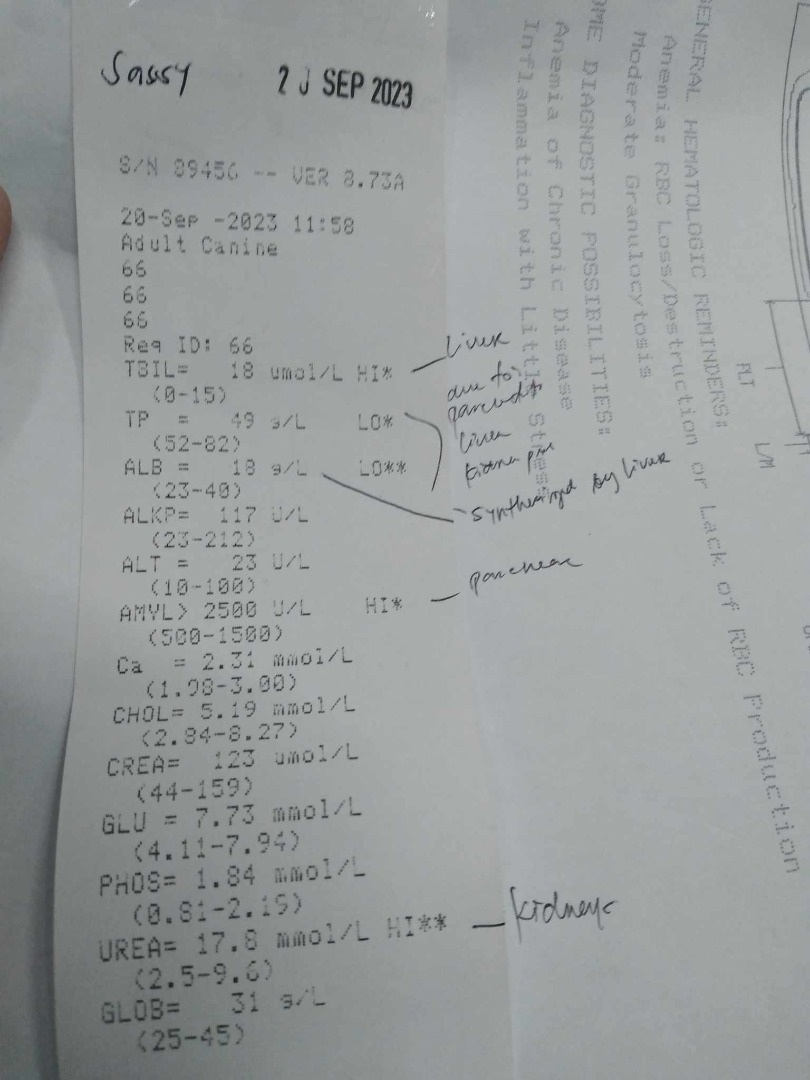 Sassy 2 SEP 2023
S/N 89456 -- VER 8.73A
20-Sep -2023 11:58
Adult Canine
66
66
66
Req ID: 66
TBIL= 18 umol/L HI*
(0-15)
TP = 49 g/L LO*
(52-82)
ALB = 18 g/L LO**
(23-40)
ALKP= 117 U/L
(23-212)
ALT = 23 U/L
(10-100)
AMYL> 2500 U/L HI*
(500-1500)
Ca = 2.31 mmol/L
(1.98-3.00)
CHOL= 5.19 mmol/L
(2.84-8.27)
CREA= 123 umol/L
(44-159)
GLU = 7.73 mmol/L
(4.11-7.94)
PHOS= 1.84 mmol/L
(0.81-2.19)
UREA= 17.8 mmol/L HI**
(2.5-9.6)
GLOB= 31 g/L
(25-45)
liver
due to
liver
synthesized by liver
pancreas
kidneys
GENERAL HEMATOLOGIC REMINDERS:
Anemia: RBC Loss/Destruction or Lack of RBC Production
Moderate Granulocytosis
OME DIAGNOSTIC POSSIBILITIES:
Anemia of Chronic Disease
Inflammation with Little Stress
PLT
L/M